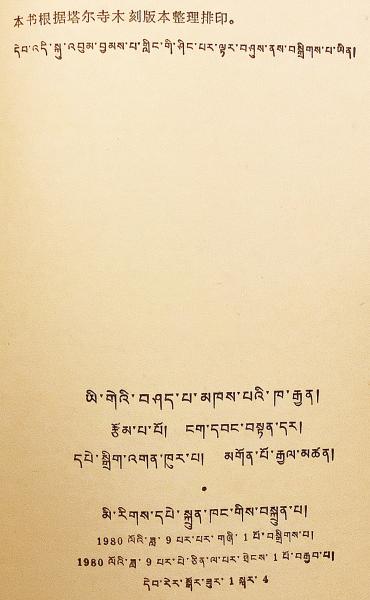 本书根据塔尔寺木刻版本整理排印。
དེབ་འདི་སྐུ་འབུམ་བྱམས་པ་གླིང་གི་ཤིང་པར་ལྟར་བཤུས་ནས་བསྒྲིགས་པ་ཡིན།
ཡི་གེའི་བཤད་པ་མཁས་པའི་ཁ་རྒྱན།
རྩོམ་པ་པོ། ངག་དབང་བསྟན་དར།
དཔེ་སྒྲིག་འགན་ཁུར་པ། མགོན་པོ་རྒྱལ་མཚན།
མི་རིགས་དཔེ་སྐྲུན་ཁང་གིས་བསྐྲུན་པ།
1980 ལོའི་ཟླ་ 9 པར་པར་གཞི་ 1 པོ་བསྒྲིགས་པ།
1980 ལོའི་ཟླ་ 9 པར་པེ་ཅིན་ལ་པར་ཐེངས་ 1 པོ་བརྒྱབ་པ།
དེབ་རེར་སྒོར་ཟུར་ 1 སྐར་ 4